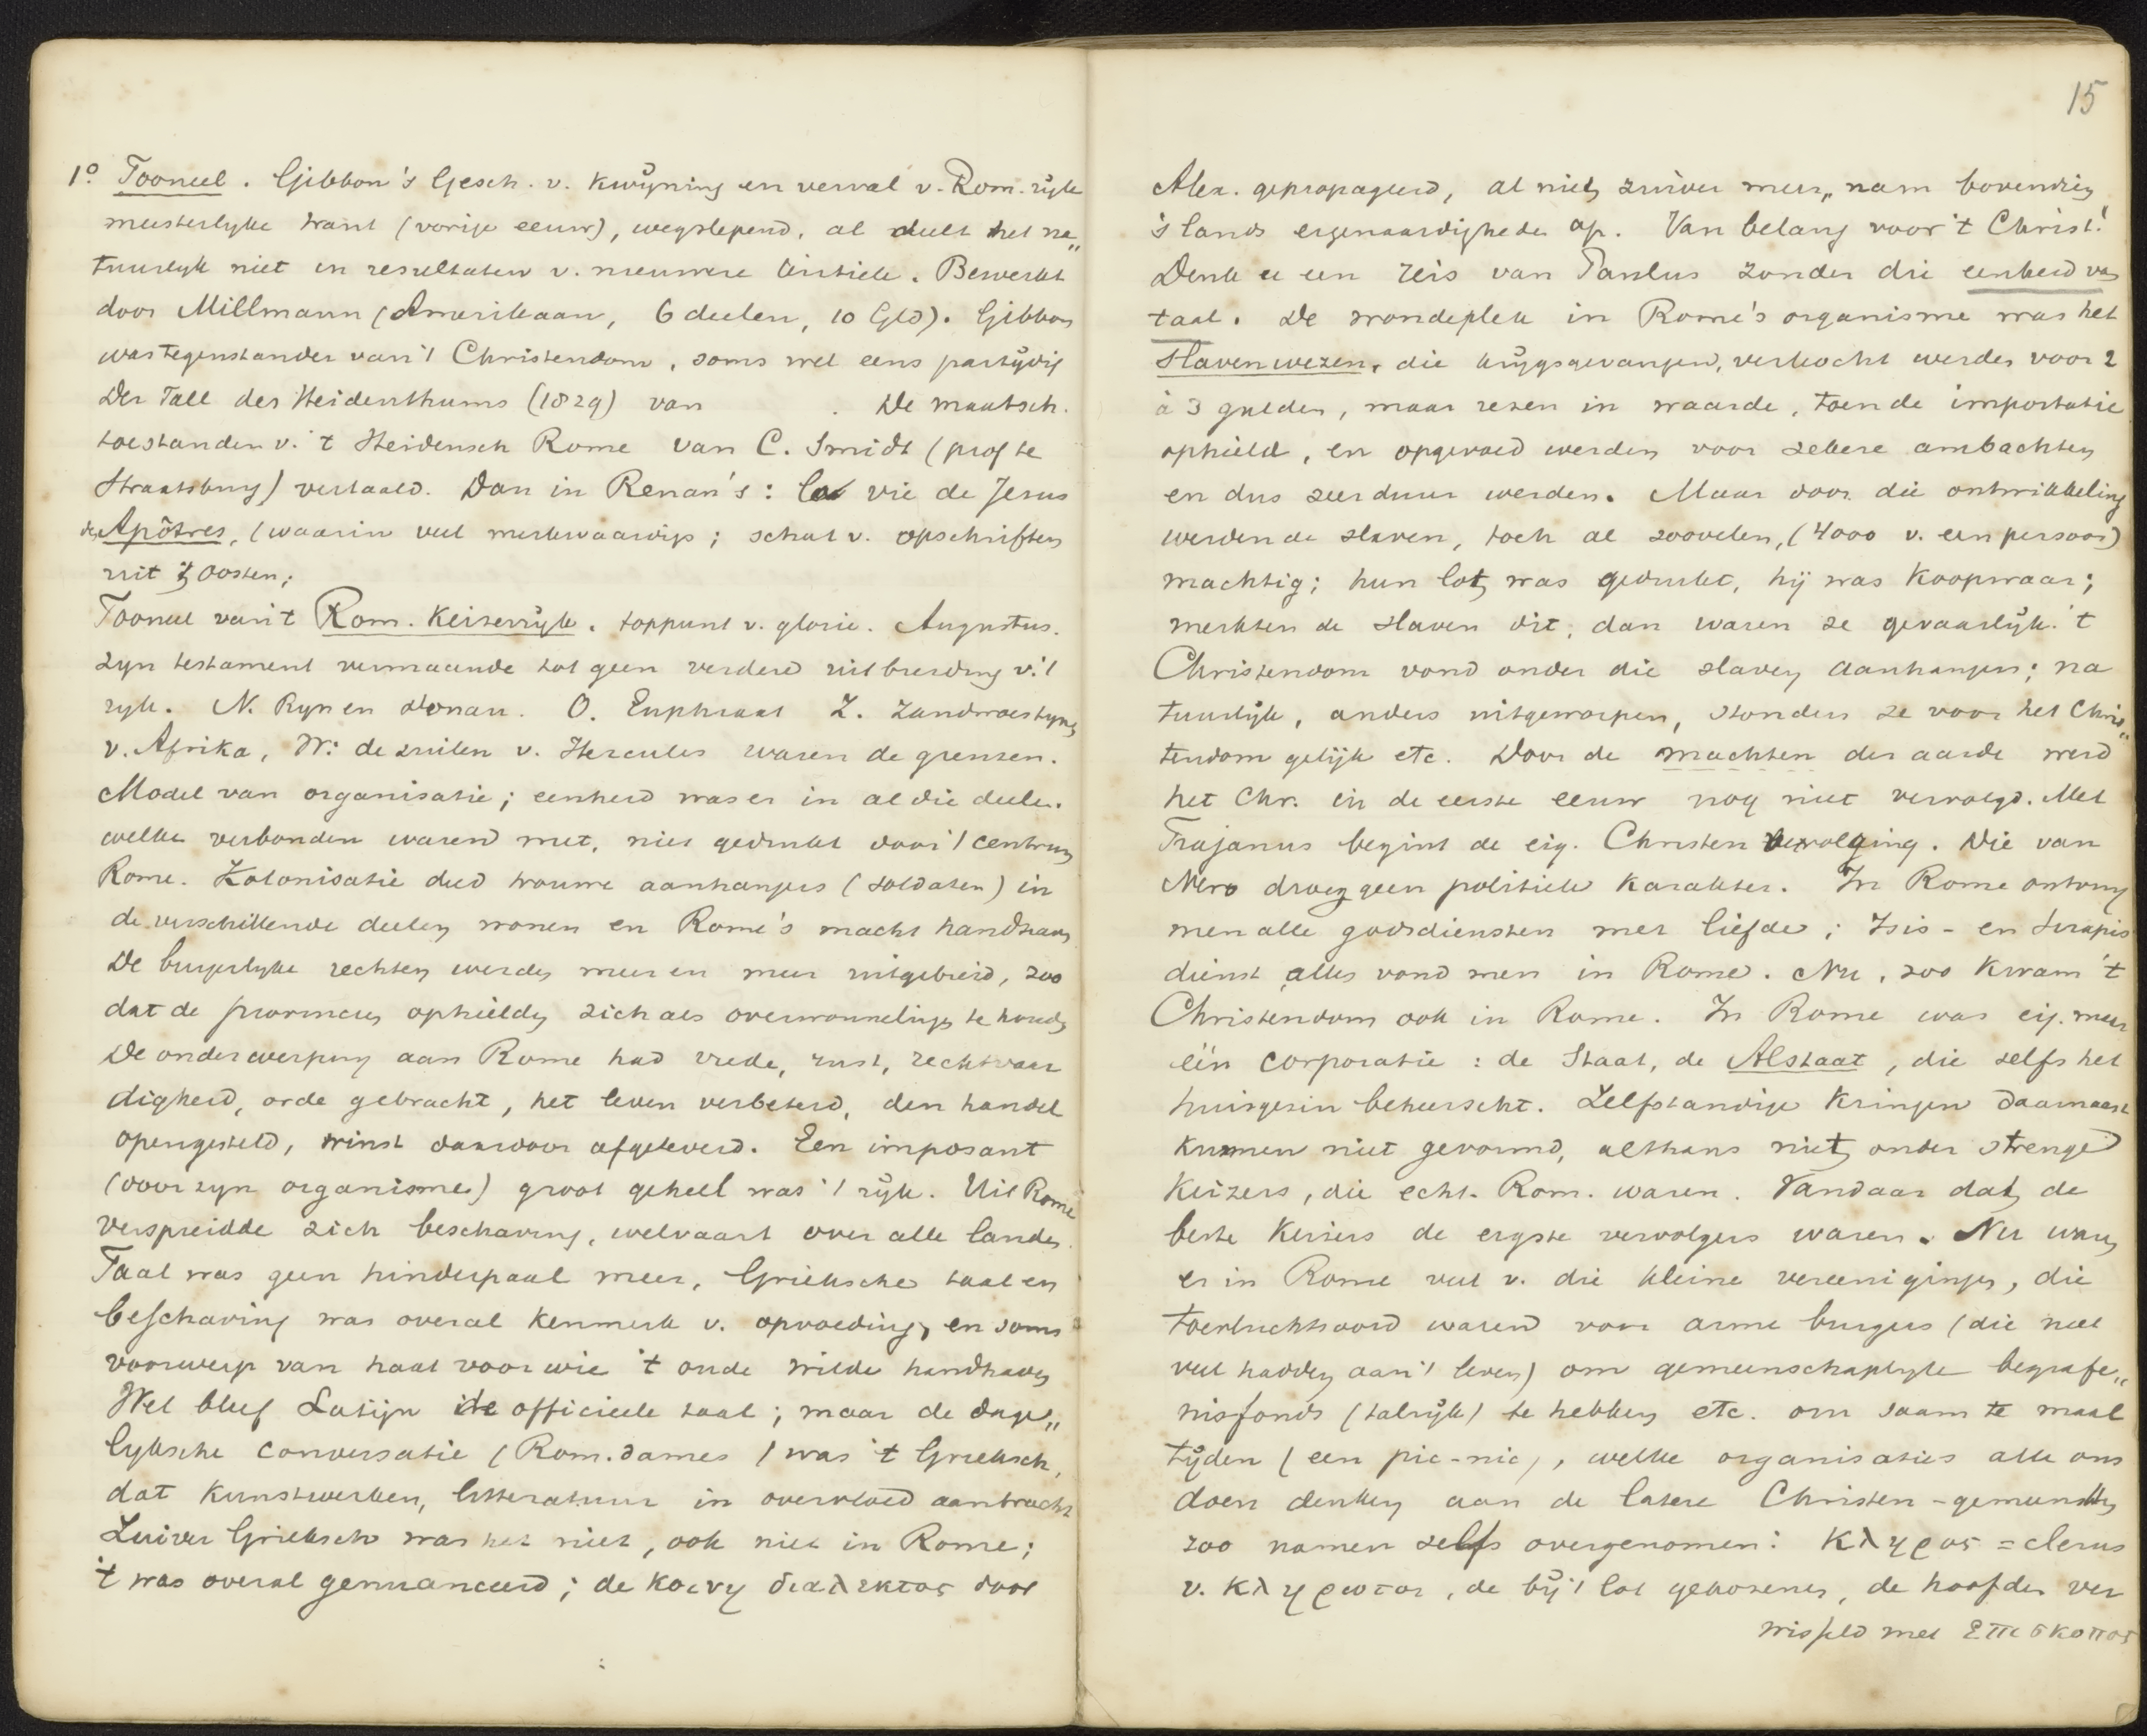 1º. Tooneel. Gibbon's Gesch. v. kwijning en verval v. Rom. rijk
meesterlyke trant (vorige eeuw), wegslepend, al deelt het na„
tuurlyk niet in resultaten v. nieuwere critiek. Bewerkt
door Millmann (Amerikaan, 6 deelen, 10 Gld). Gibbon
was tegenstander van 't Christendom, soms wel eens partijdig
Der Fall des Heidenthums (1829) van . De maatsch.
toestanden v. 't Heidensch Rome van C. Smidt (prof te
Straatsburg) vertaald. Dan in Renan's: La vie de Jesus
des Apôtres, (waarin veel merkwaardigs; schat v. opschriften
uit 't Oosten;
Tooneel van 't Rom. Keizerrijk. toppunt v. glorie. Augustus.
zyn testament vermaande tot geen verdere uitbreiding v. 't
ryk. N. Ryn en Donau. O. Euphraat Z. Zandwoestyne
v. Afrika, W: de zuilen v. Hercules waren de grenzen.
Model van organisatie; eenheid was er in al die deelen.
welke verbonden waren met, niet gedrukt door 't centrum
Rome. Kolonisatie deed trouwe aanhangers (soldaten) in
de verschillende deelen wonen en Rome's macht handhaven
De burgerlyke rechten werden meer en meer uitgebreid, zoo
dat de provincies ophielden zich als overwonnelingen te houden
De onderwerping aan Rome had vrede, rust, rechtvaar
digheid, orde gebracht, het leven verbeterd, den handel
opengesteld, winst daardoor afgeleverd. Een imposant
(door zyn organisme) groot geheel was 't rijk. Uit Rome
verspreidde zich beschaving, welvaart over alle landen.
Taal was geen hinderpaal meer, Grieksche taal en
beschaving was overal kenmerk v. opvoeding, en soms
voorwerp van haat voor wie 't oude wilde handhaven
Wel bleef Latijn de officieele taal; maar de dage„
lyksche conversatie (Rom. dames) was 't Grieksch,
dat kunstwerken, litteratuur in overvloed aanbracht
Zuiver Grieksch was het niet, ook niet in Rome;
't was overal genuanceerd; de κοινη διαλεκτος door
15
Alex. gepropageerd, al niet zuiver meer, nam bovendien
's lands eigenaardigheden op. Van belang voor 't Christ!
Denk u een reis van Paulus zonder die eenheid van
taal. De wondeplek in Rome's organisme was het
Slavenwezen, die krijgsgevangen, verkocht werden voor 2
à 3 gulden, maar rezen in waarde, toen de importatie
ophield, en opgevoed werden voor zekere ambachten
en dus zeer duur werden. Maar door die ontwikkeling
werden de slaven, toch al zoovelen, (4000 v. een persoon)
machtig; hun lot was gedrukt, hij was koopwaar;
merkten de slaven dit, dan waren ze gevaarlijk. 't
Christendom vond onder die slaven aanhangers; na
tuurlijk, anders uitgeworpen, stonden ze voor het Chris„
tendom gelijk etc. Door de machten der aarde werd
het Chr. in de eerste eeuw nog niet vervolgd. Met
Trajanus begint de eig. Christen vervolging. Die van
Nero droeg geen politiek karakter. In Rome ontving
men alle godsdiensten met liefde; Isis- en Serapis
dienst, alles vond men in Rome. Nu, zoo kwam 't
Christendom ook in Rome. In Rome was eig. maar
één corporatie: de Staat, de Alstaat, die zelfs het
huisgezin beheerscht. Zelfstandige kringen daarnaast
kunnen niet gevormd, althans niet onder strenge
Keizers, die echt-Rom. waren. Vandaar dat de
beste Keizers de ergste vervolgers waren. Nu waren
er in Rome veel v. die kleine vereenigingen, die
toevluchtsoord waren voor arme burgers (die niet
veel hadden aan 't leven) om gemeenschaplyke begrafe„
nisfonds (talrijk) te hebben etc. om saam te maal
tijden (een pic-nic), welke organisaties alle ons
doen denken aan de latere Christen-gemeenten
zoo namen zelfs overgenomen: κληρος = clerus
v. κληρωτοι, de bij 't lot gekozenen, de hoofden ver
wisseld met επισκοπος